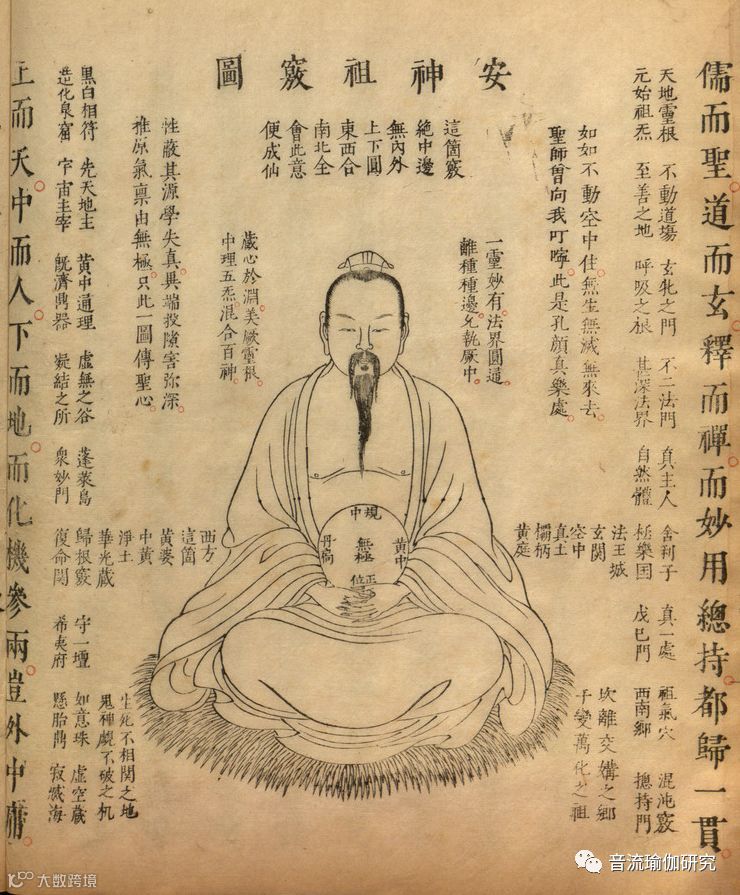 安神祖竅圖
儒而聖道而玄釋而禪而妙用總持都歸一貫
天地靈根 不動道塲 玄牝之門 不二法門 真主人 舍利子 真一處 祖氣穴 混沌竅
元始祖炁 至善之地 呼吸之根 甚深法界 自然體 極樂国 戊己門 西南鄉 摠持門
法王城
玄関
空中
真土
欛柄
黃庭
坎離交媾之鄉
千變萬化之祖
如如不動空中住無生無滅無來去
聖師曾向我叮嚀此是孔顔真樂處
一靈妙有法界圓通
離種種邊允執厥中
這箇竅
絶中邊
無內外
上下圓
東西合
南北全
會此意
便成仙
藏心於淵美厥靈根
中理五炁混合百神
性蔽其源學失真異端投隙害弥深
推原氣禀由無極只此一圖傳聖心
規中
黃中
無極
正位
丹扃
西方
這箇
黃婆
中黃
淨土
華光藏
生死不相関之地
鬼神覷不破之机
黒白相符 先天地主 黃中通理 虛無之谷 蓬萊島 歸根竅 守一壇 如意珠 虛空藏
造化泉窟 宇宙主宰 旣濟鼎器 凝結之所 衆妙門 復命関 希夷府 懸胎鼎 寂滅海
上而天中而人下而地而化機參兩豈外中庸
大数跨境
音流瑜伽研究